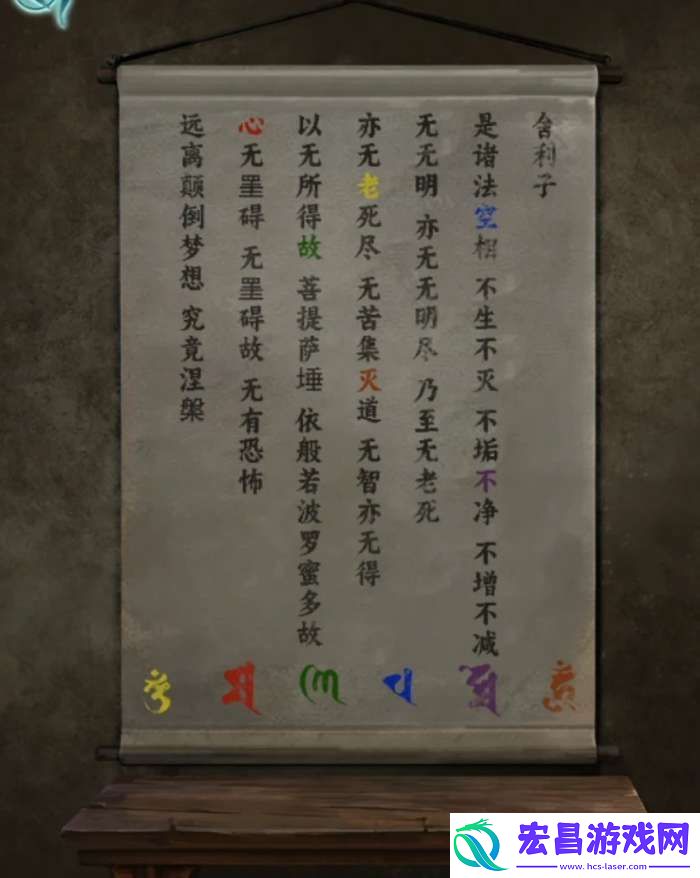 舍利子
是诸法空相 不生不灭 不垢不净 不增不减
无无明 亦无无明尽 乃至无老死
亦无老死尽 无苦集灭道 无智亦无得
以无所得故 菩提萨埵 依般若波罗蜜多故
心无罣碍 无罣碍故 无有恐怖
远离颠倒梦想 究竟涅槃
宏昌游戏网
www.hcs-laser.com